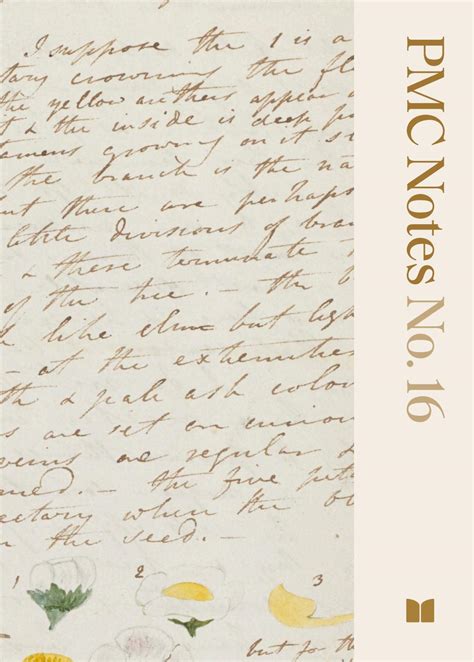 I suppose the 1 is a
tary crowning the fl
the yellow anthers appear
t & the inside is deep
tamens growing on it s
the branch is the na
but there are perhaps
little divisions of bran
& these terminate
of the tree. — the b
k like elm but ligh
— at the extremities
th & pale ash colou
es are set on curiou
veins are regular &
med. — the five peta
ectary when the bo
n the seed. —
1 2 3
but for th
PMC Notes No. 16